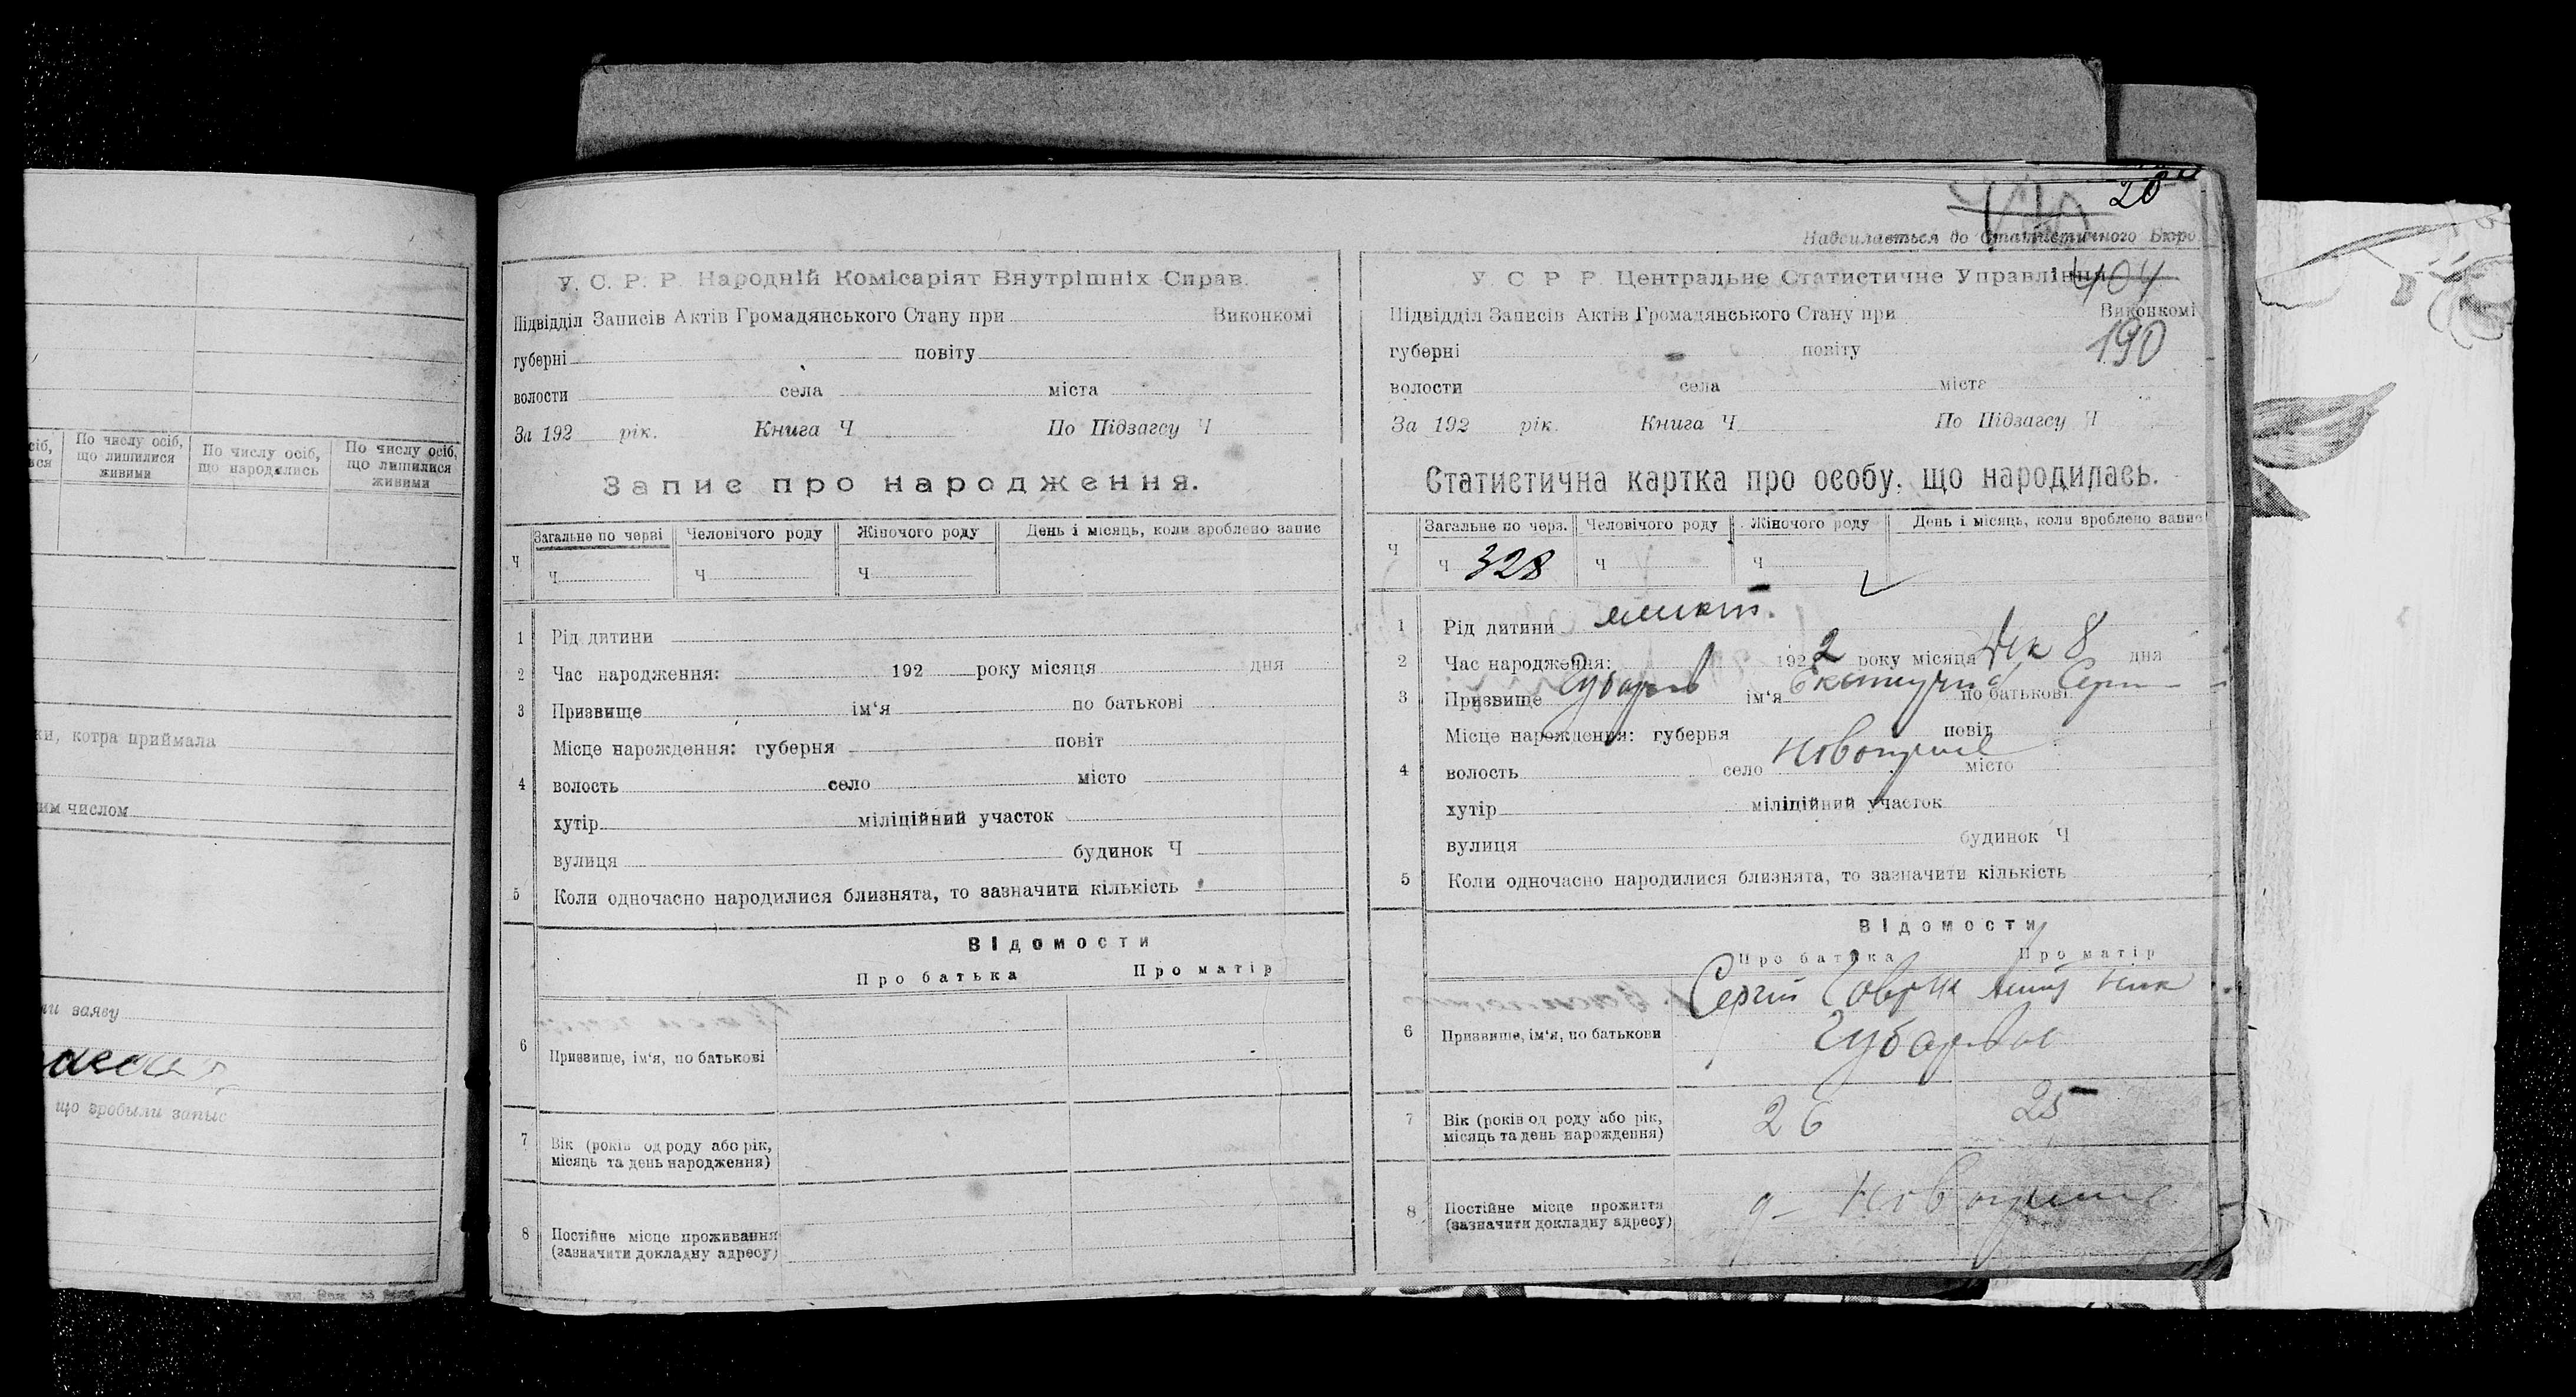 20
Надсилається до Статистичного Бюро
404
190
По числу осіб, що лишилися живими
По числу осіб, що народились
По числу осіб, що лишилися живими
ки, котра приймала
им числом
ли заяву
що зробыли запыс
У. С. Р. Р. Народній Комісаріят Внутрішніх Справ.
Підвідділ Записів Актів Громадянського Стану при Виконкомі
губерні повіту
волости села міста
За 192 рік. Книга Ч По Підзагсу Ч
Запис про народження.
Загальне по черві Человічого роду Жіночого роду День і місяць, коли зроблено запис
Ч ч ч ч
1 Рід дитини
2 Час народження: 192 року місяця дня
3 Призвище ім'я по батькові
Місце нарождення: губерня повіт
4 волость село місто
хутір міліційний участок
вулиця будинок Ч
5 Коли одночасно народилися близнята, то зазначити кількість
Відомости
Про батька Про матір
6 Призвище, ім'я, по батькові
7 Вік (років од роду або рік,
місяць та день народження)
8 Постійне місце проживання
(зазначити докладну адресу)
У С Р Р Центральне Статистичне Управління
Підвідділ Записів Актів Громадянського Стану при Виконкомі
губерні повіту
волости села міста
За 192 рік. Книга Ч По Підзагсу Ч
Статистична картка про особу, що народилась.
Загальне по черв. Человічого роду Жіночого роду День і місяць, коли зроблено запис
Ч ч 328 ч ч
1 Рід дитини
2 Час народження: 192 2 року місяця Дек 8 дня
3 Призвище ім'я по батькові
Місце нарождення: губерня повіт
4 волость село місто
хутір міліційний участок
вулиця будинок Ч
5 Коли одночасно народилися близнята, то зазначити кількість
Відомости
Про батька Про матір
Сергій
6 Призвище, ім'я, по батькови
7 Вік (років од роду або рік,
місяць та день нарождення) 26 25
8 Постійне місце прожиття
(зазначити докладну адресу)